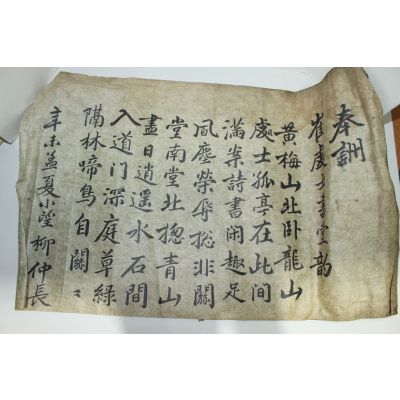 奉酬
崔處士書堂韻
黃梅山北卧龍山
處士孤亭在此間
滿案詩書閑趣足
風塵榮辱摠非關
堂南堂北摠青山
盡日逍遥水石間
入道門深庭草綠
隔林啼鳥自關〻
辛未孟夏小望柳仲長